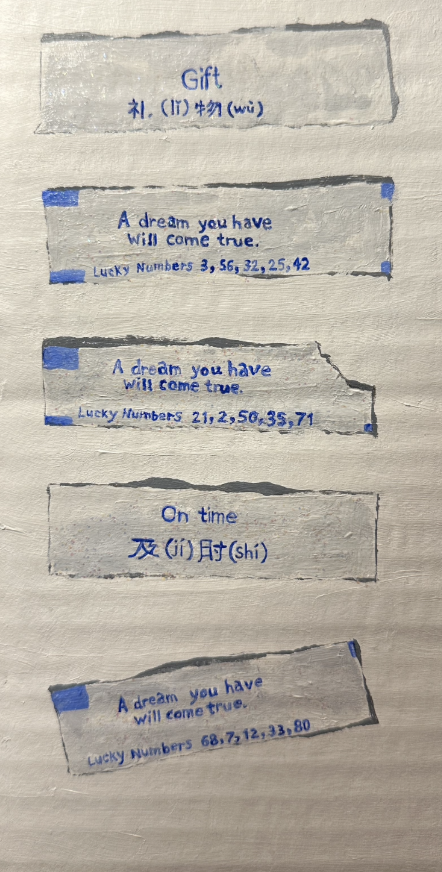 Gift
礼.(lǐ)物(wù)
A dream you have
Will come true.
Lucky Numbers 3, 56, 32, 25, 42
A dream you have
will come true.
Lucky Numbers 21, 2, 50, 35, 71
On time
及(jí)时(shí)
A dream you have
will come true.
Lucky Numbers 68, 7, 12, 33, 80